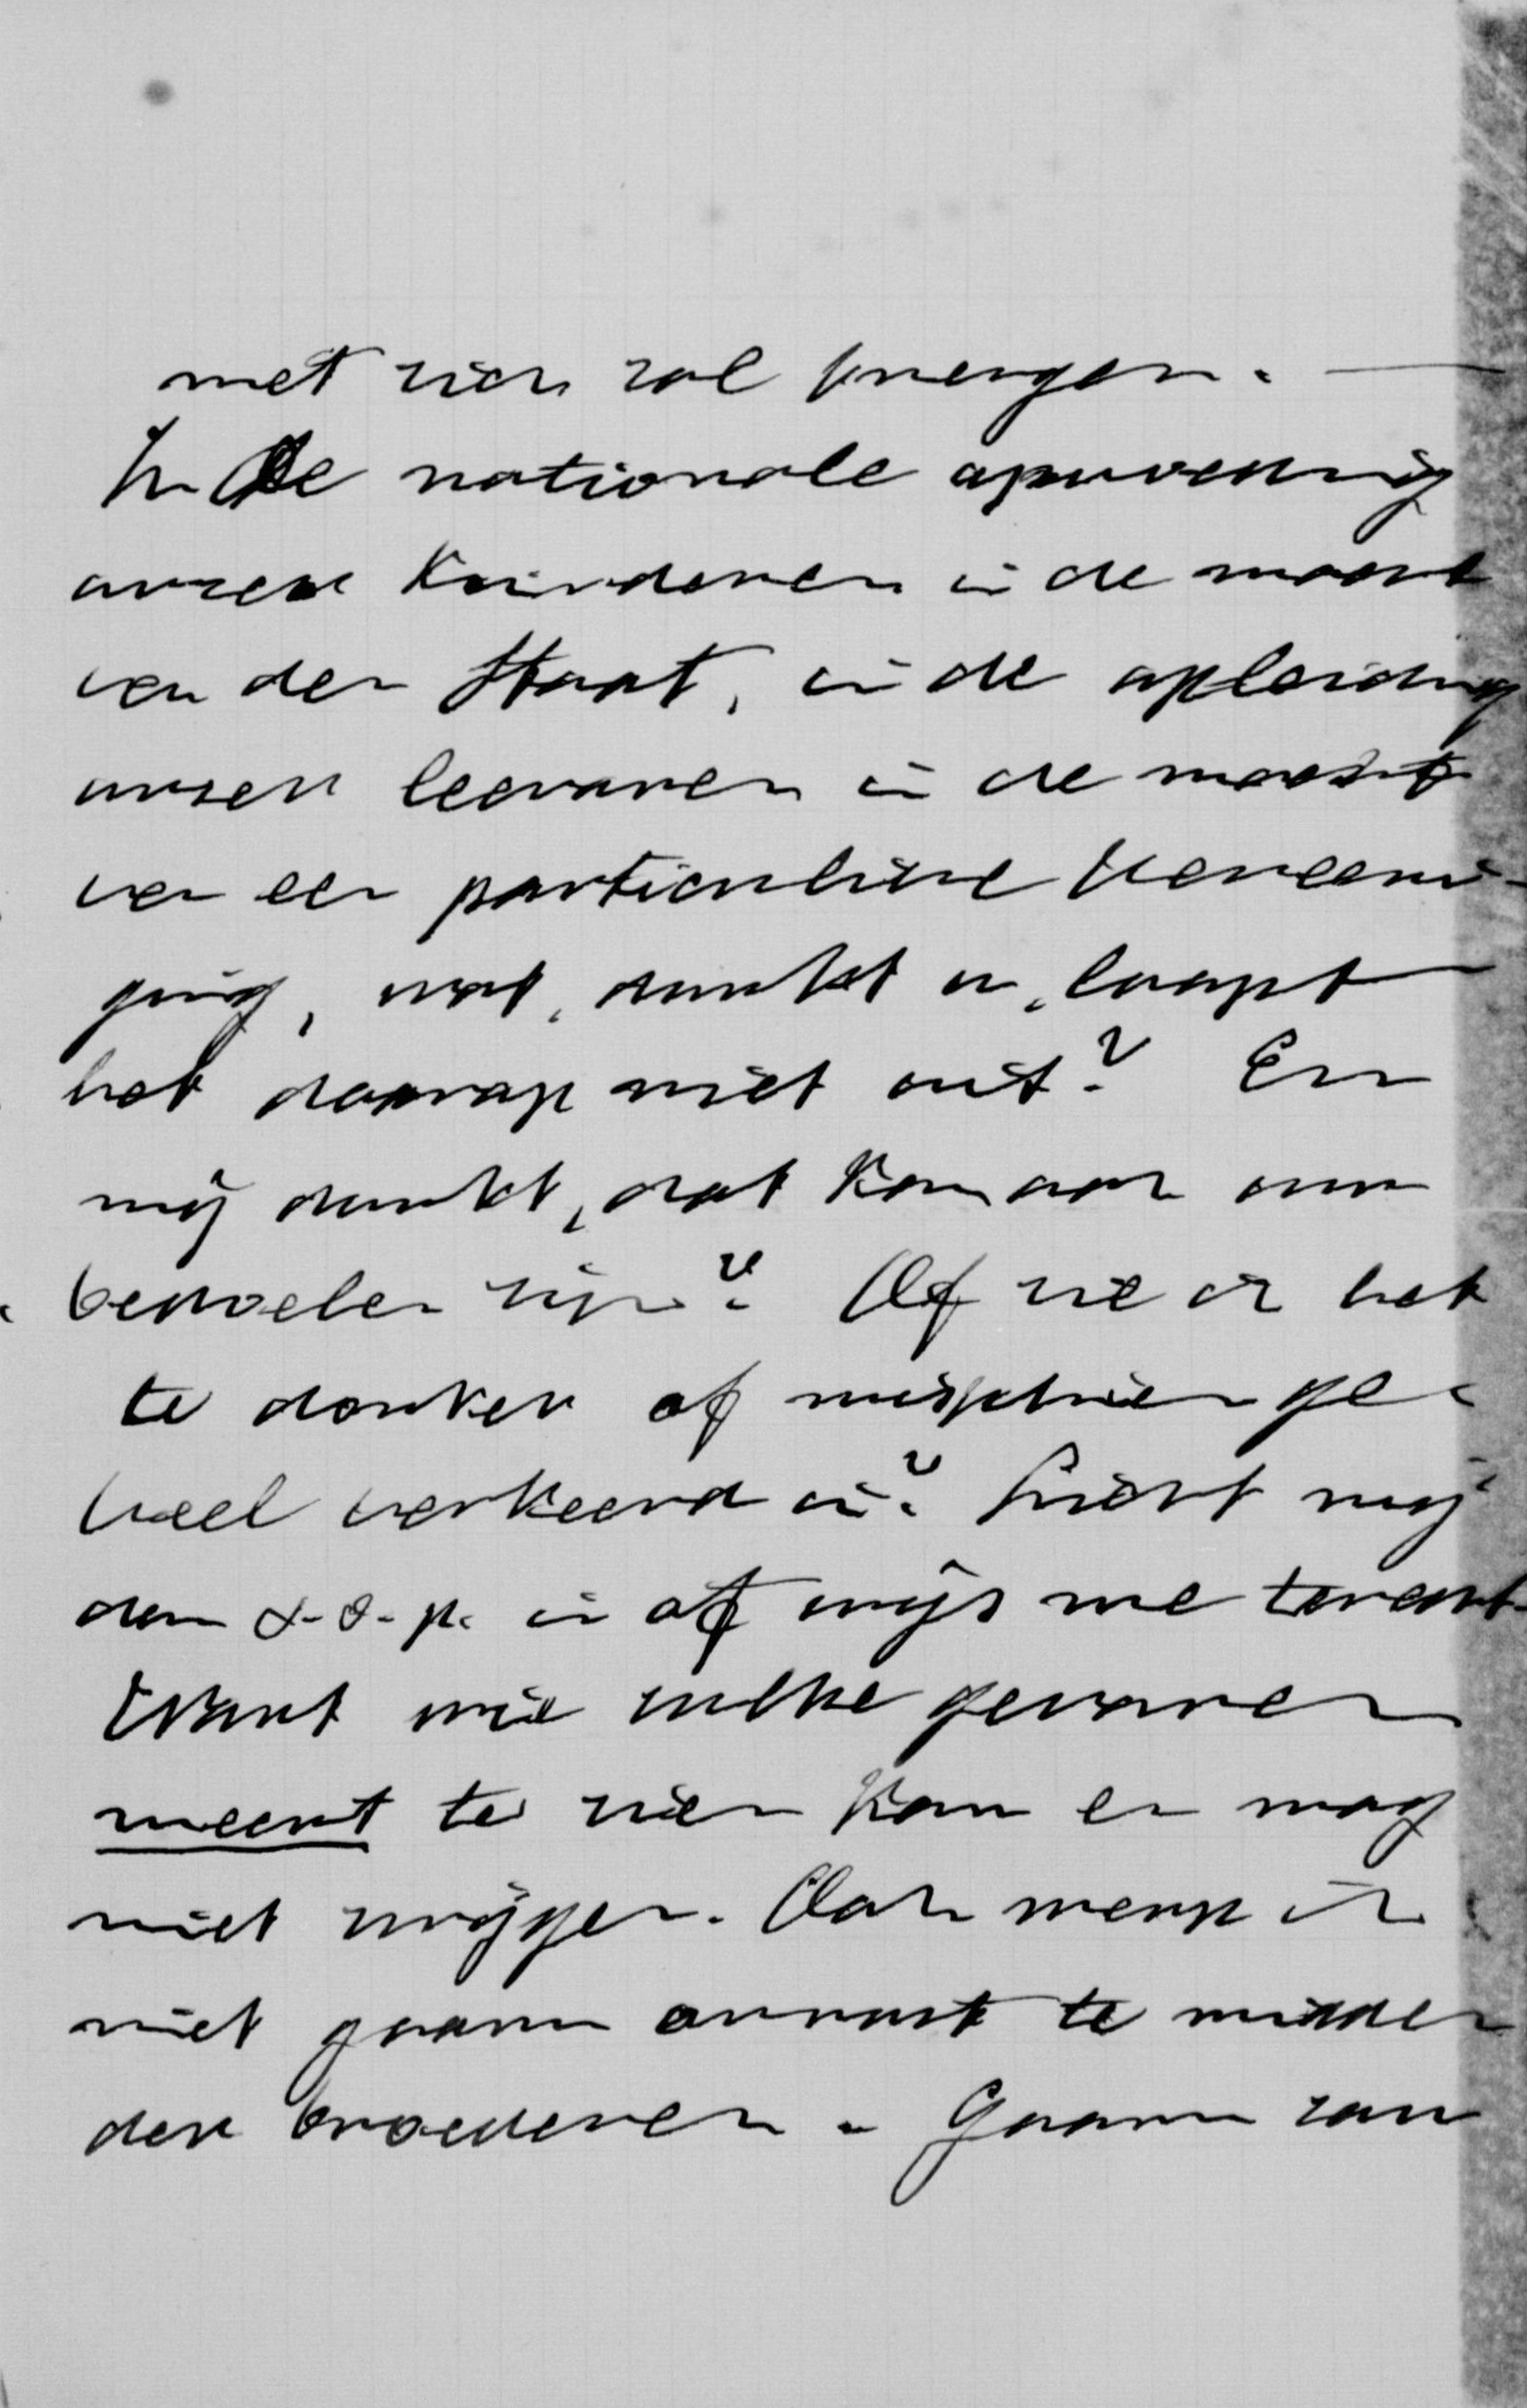 met zich zal brengen. —
In de nationale opvoeding
onzer kinderen in de macht
van den Staat, in de opleiding
onzer leeraren in de macht
van een particuliere Vereeni-
ging, wat, dunkt u, loopt
het daarop niet uit? En
mij dunkt, dat kan ook uw
bedoelen zijn? Of zie ik het
te donker of misschien ge-
heel verkeerd in? Licht mij
dan s.v.p. in of wijs me terecht.
Want wie zulke gevaren
meent te zien kan en mag
niet zwijgen. Ook werp ik
niet gaarne onrust te midden
der broederen. Gaarne zou